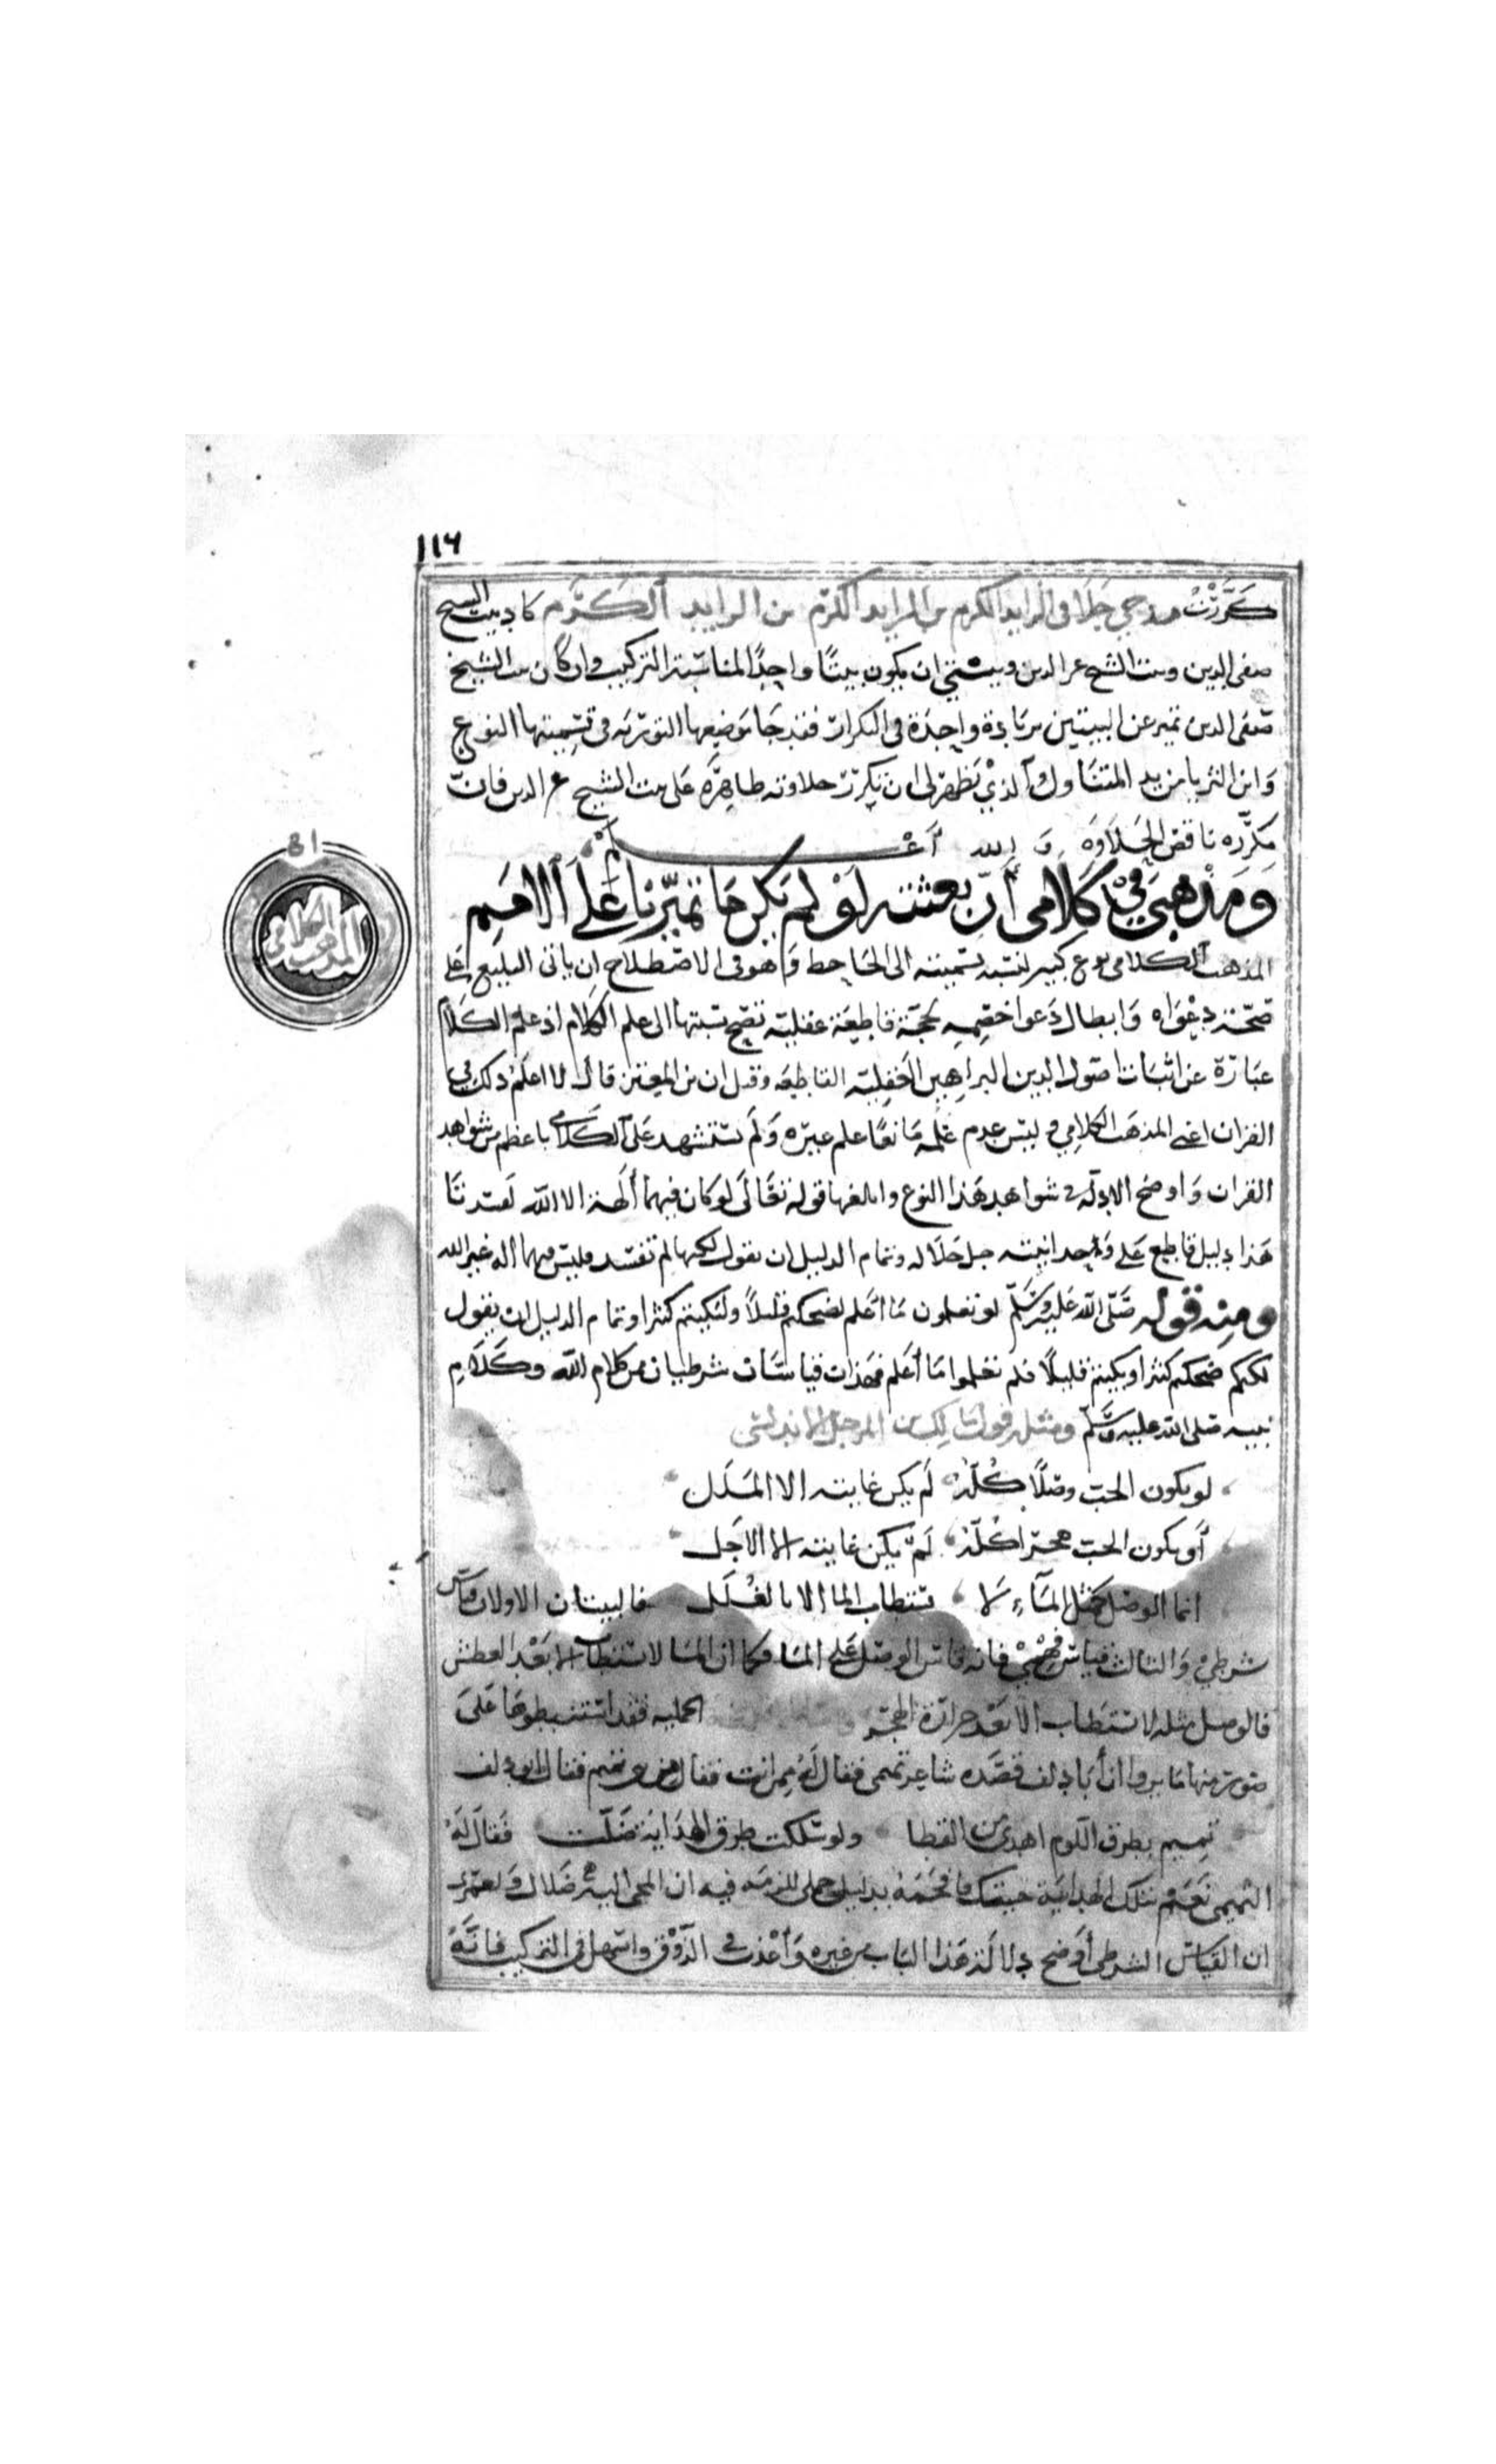 ١١٦
كررت مدحي حلا في الزايد الكرم من الزايد الكرم من الزايد الكرم كاد بيت الشيخ
صفى الدين وبيت الشيخ عز الدين وبيتي ان يكون بيتا واحدا لمناسبة التركيب وان كان بيت الشيخ
صفى الدين تميز عن البيتين بزيادة واحدة في التكرار فقد جا موضعها التورية في تسميتها النوع
واين الثريا من يد المتناول الذي يظهر لى ان تكرر حلاوته ظاهرة على بيت الشيخ عز الدين فان
مكرره ناقص الحلاوة و الله أعلم
ومذهبي في كلامى أن بعثته لو لم تكن ما تميزنا على الامم
المذهب الكلامي
81
المذهب الكلامى نوع كبير نسبة تسميته الى الجاحظ وهو في الاصطلاح ان ياتى البليغ على
صحة دعواه وابطال دعوا خصمه بحجة قاطعة عقلية تصح نسبتها الى علم الكلام اذ علم الكلام
عبارة عن اثبات اصول الدين بالبراهين العقلية القاطعه وقيل ان بن المعتز قال لا اعلم ذلك في
القران اعني المذهب الكلامي وليس عدم علمه مانعا علم غيره ولم يستشهد على الكلامى باعظم من شواهد
القران واوضح الادلة في شواهد هذا النوع وابلغها قوله تعالى لو كان فيهما ألهة الا الله لفسدتا
هذا دليل قاطع على وحدانيته جل جلاله وتمام الدليل ان يقول لكنهما لم تفسد فليس فيهما اله غير الله
ومنه قوله صلى الله عليه وسلم لو تعلمون ما أعلم لضحكتم قليلا ولبكيتم كثيرا وتمام الدليل ان يقول
لكنكم ضحكتم كثيرا وبكيتم قليلا فلم تعلموا ما أعلم فهذان قياسان شرطيان من كلام الله وكلام
نبيه صلى الله عليه وسلم ومثله قول مالك بن المرحل الاندلسي
لو يكون الحب وصلا كله لم يكن غايته الا الملل
أو يكون الحب هجرا كله لم يكن غايته الا الاجل
انما الوصل كمثل الماء لا يستطاب الما الا بالغلل فالبيتان الاولان قياس
شرطي والثالث قياس فقهي فانه قاس الوصل على الما فكما ان الما لا يستطاب الا بعد العطش
فالوصل مثله لا يستطاب الا بعد حرارة الهجر الجمليه فقد استنبطوها على
صورة منها ما يروا أن أبا دلف قصده شاعر تميمى فقال له ممن انت فقال من بنى تميم فقال ابو دلف
تميم بطرق اللوم اهدى من القطا ولو سلكت طرق الهداية ضلت فقال له
التميمى نعم بتلك الهداية جيتك فافحمه بدليل حملى الزمه فيه ان المجى اليه ضلال ولعمرى
ان القياس الشرطى أوضح دلالة في هذا الباب من غيره وأعذب في الذوق واسهل في التركيب فانه